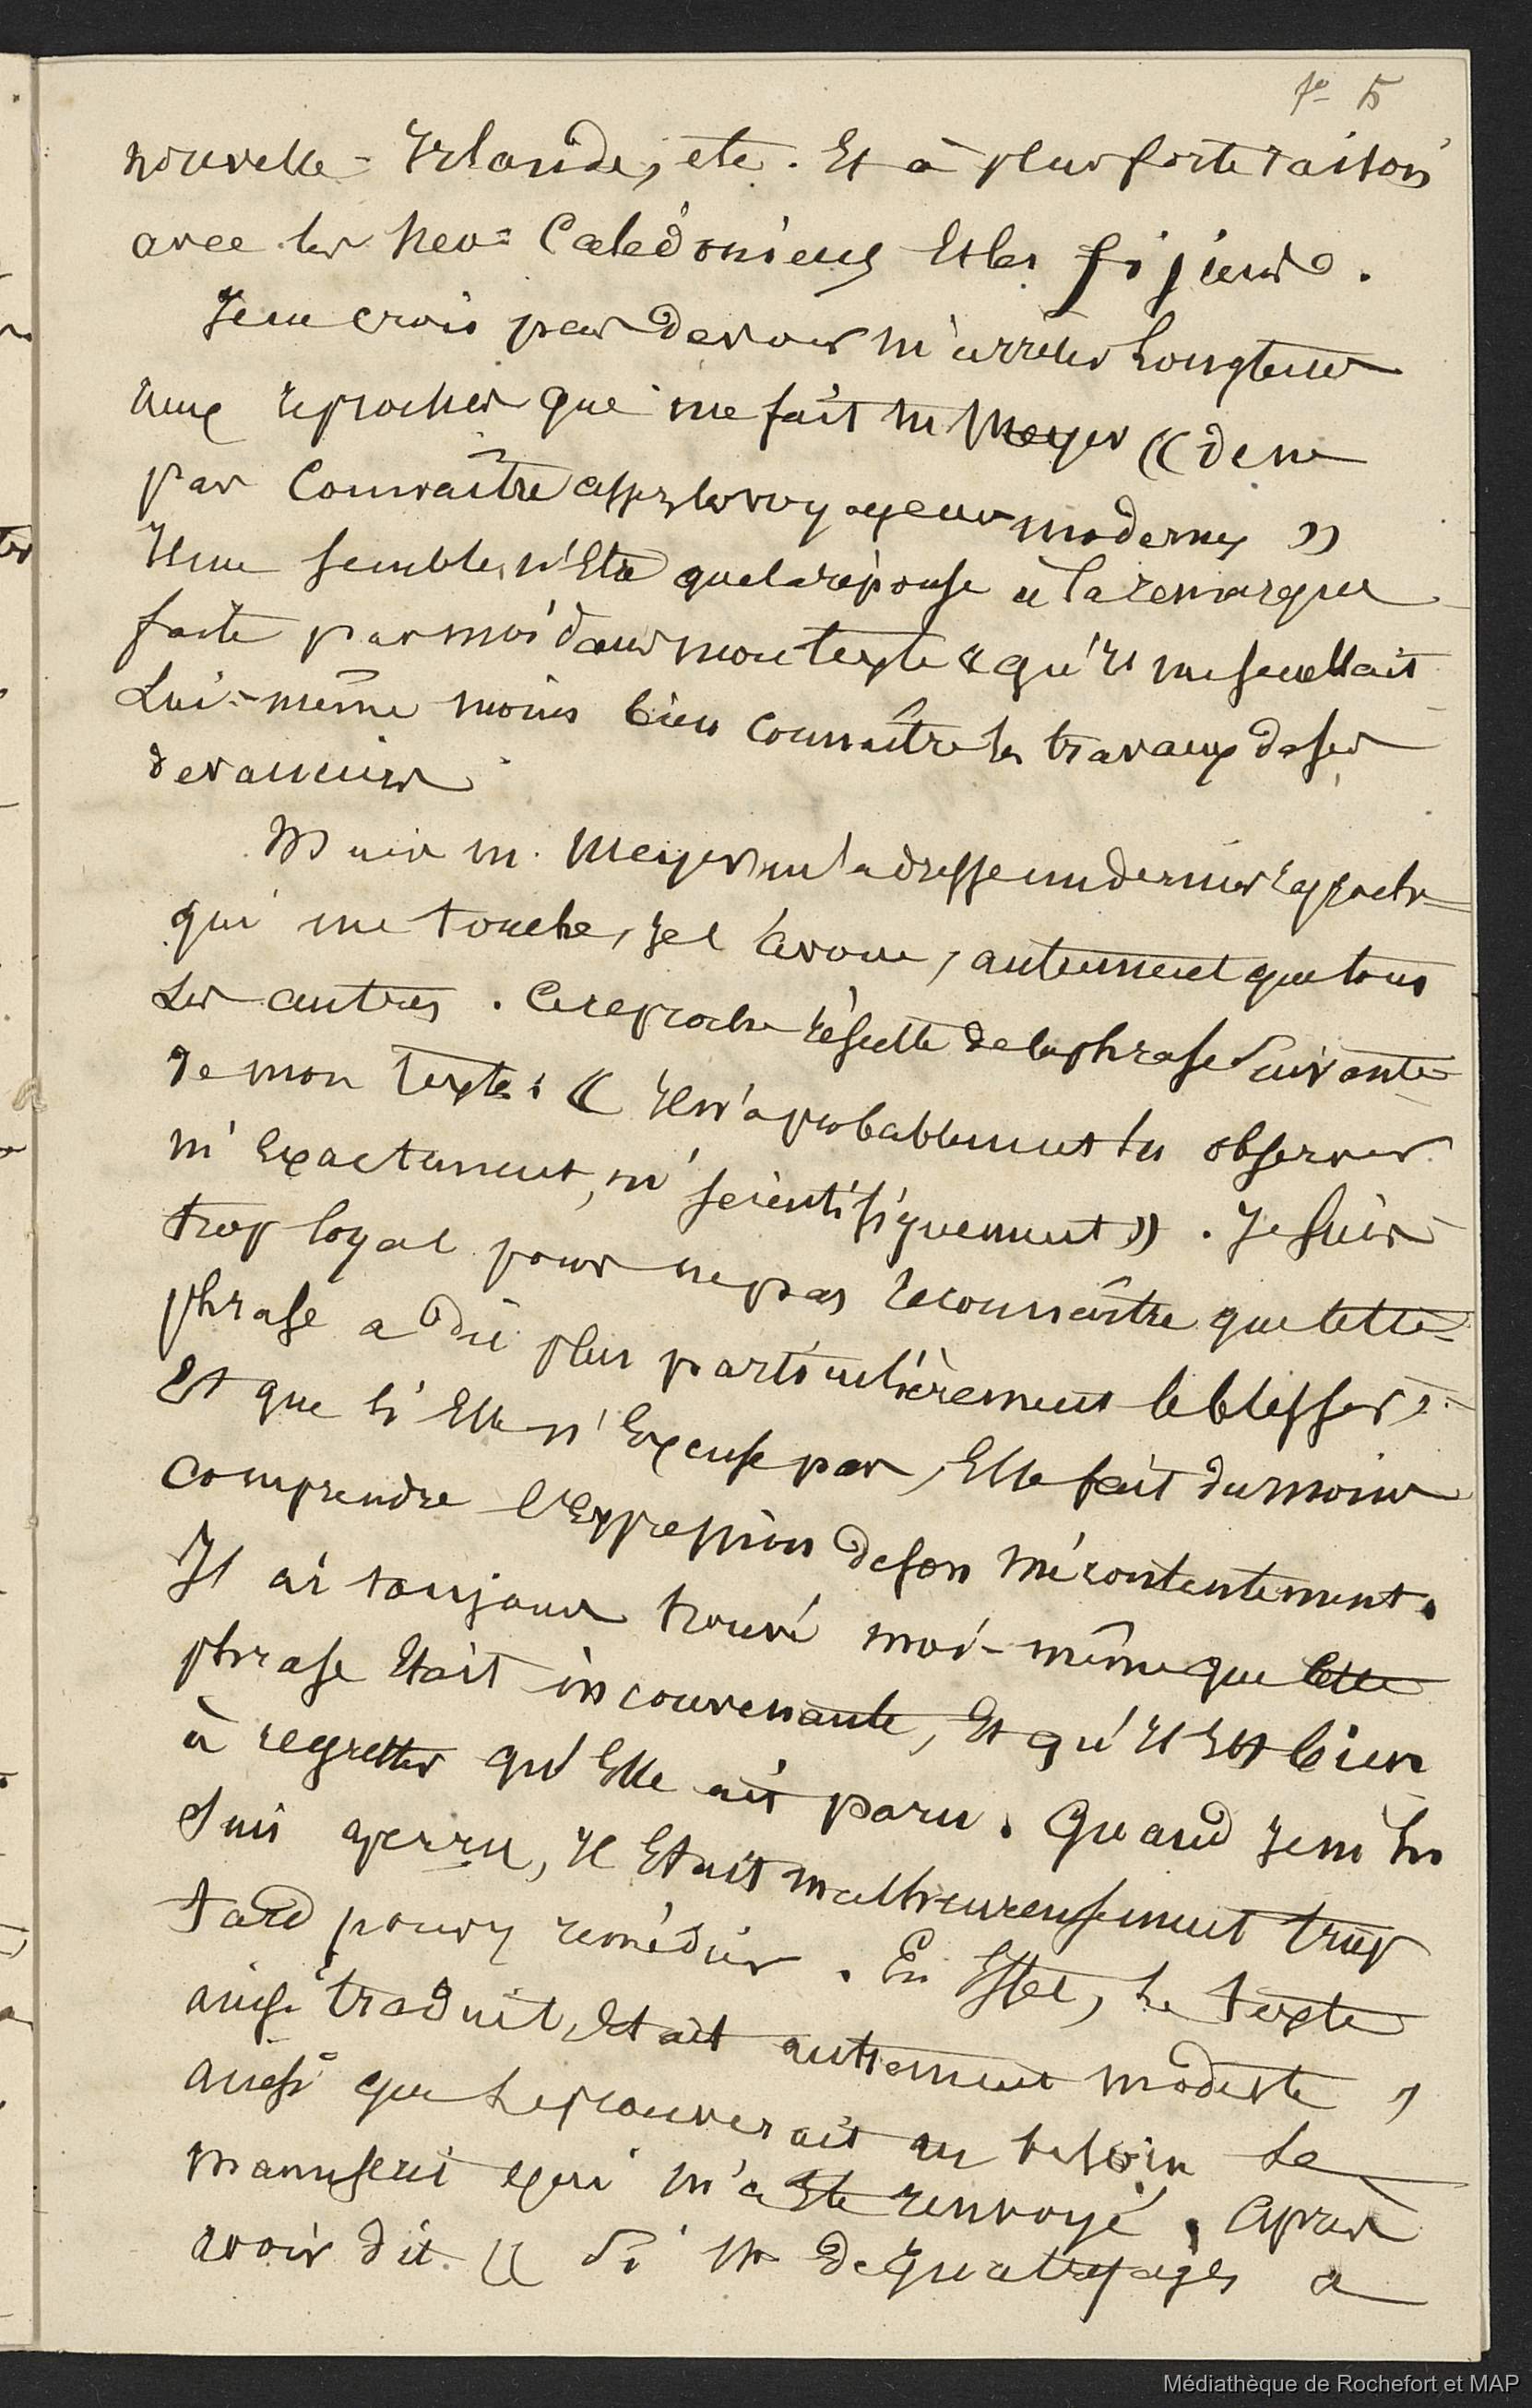 fo 5
nouvelle-Irlande, etc. Et à plus forte raison
avec les Néo-Calédoniens et les fijiens.
Je ne crois pas devoir m'arrêter longtems
aux reproches que me fait M Meyer « de ne
pas Connaître assez les voyageurs modernes »
Il me semble, n'Etre que la réponse à la remarque
faite par moi dans mon texte « qu'il me semblait
Lui-même moins bien connaître les travaux de ses
devanciers
Mais M. Meyer m'adresse un dernier reproche
qui me touche, je l'avoue, autrement que tous
Les autres. Ce reproche résulte de la phrase Suivante
de mon texte : « Il n'a probablement su observer
ni Exactement, ni scientifiquement ». Je suis
trop loyal pour ne pas reconnaître que cette
phrase a dû plus particulièrement le blesser,
Et que si Elle n'Excuse pas, Elle fait du moins
comprendre l'Expression de son mécontentement.
J'ai toujours trouvé moi-même que cette
phrase Etait inconvenante, Et qu'il Est bien
à regretter qu'Elle ait paru. Quand je m'en
suis aperçu, il Etait malheureusement trop
tard pour y remédier. En Effet, le texte
ainsi traduit, Etait autrement modeste,
ainsi que le prouverait au besoin le
manuscrit qui m'a Eté renvoyé. Après
avoir dit « Si M de Quatrefages a
Médiathèque de Rochefort et MAP